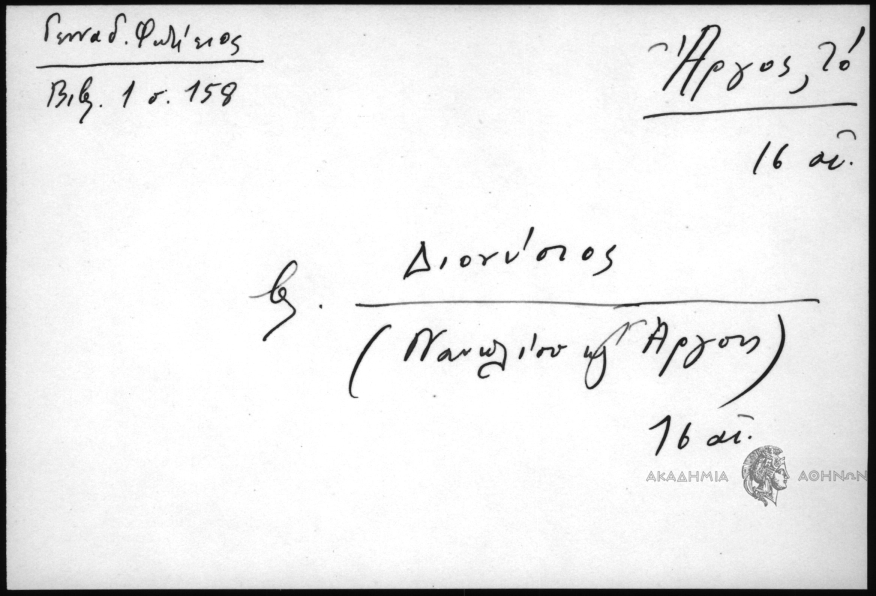 Γενναδ. Φωτίειος
Βιβ. 1 σ. 158
Ἄργος, τό
16 αἰ.
βλ. Διονύσιος
(Ναυπλίου καὶ Ἄργους)
16 αἰ.
ΑΚΑΔΗΜΙΑ ΑΘΗΝΩΝ